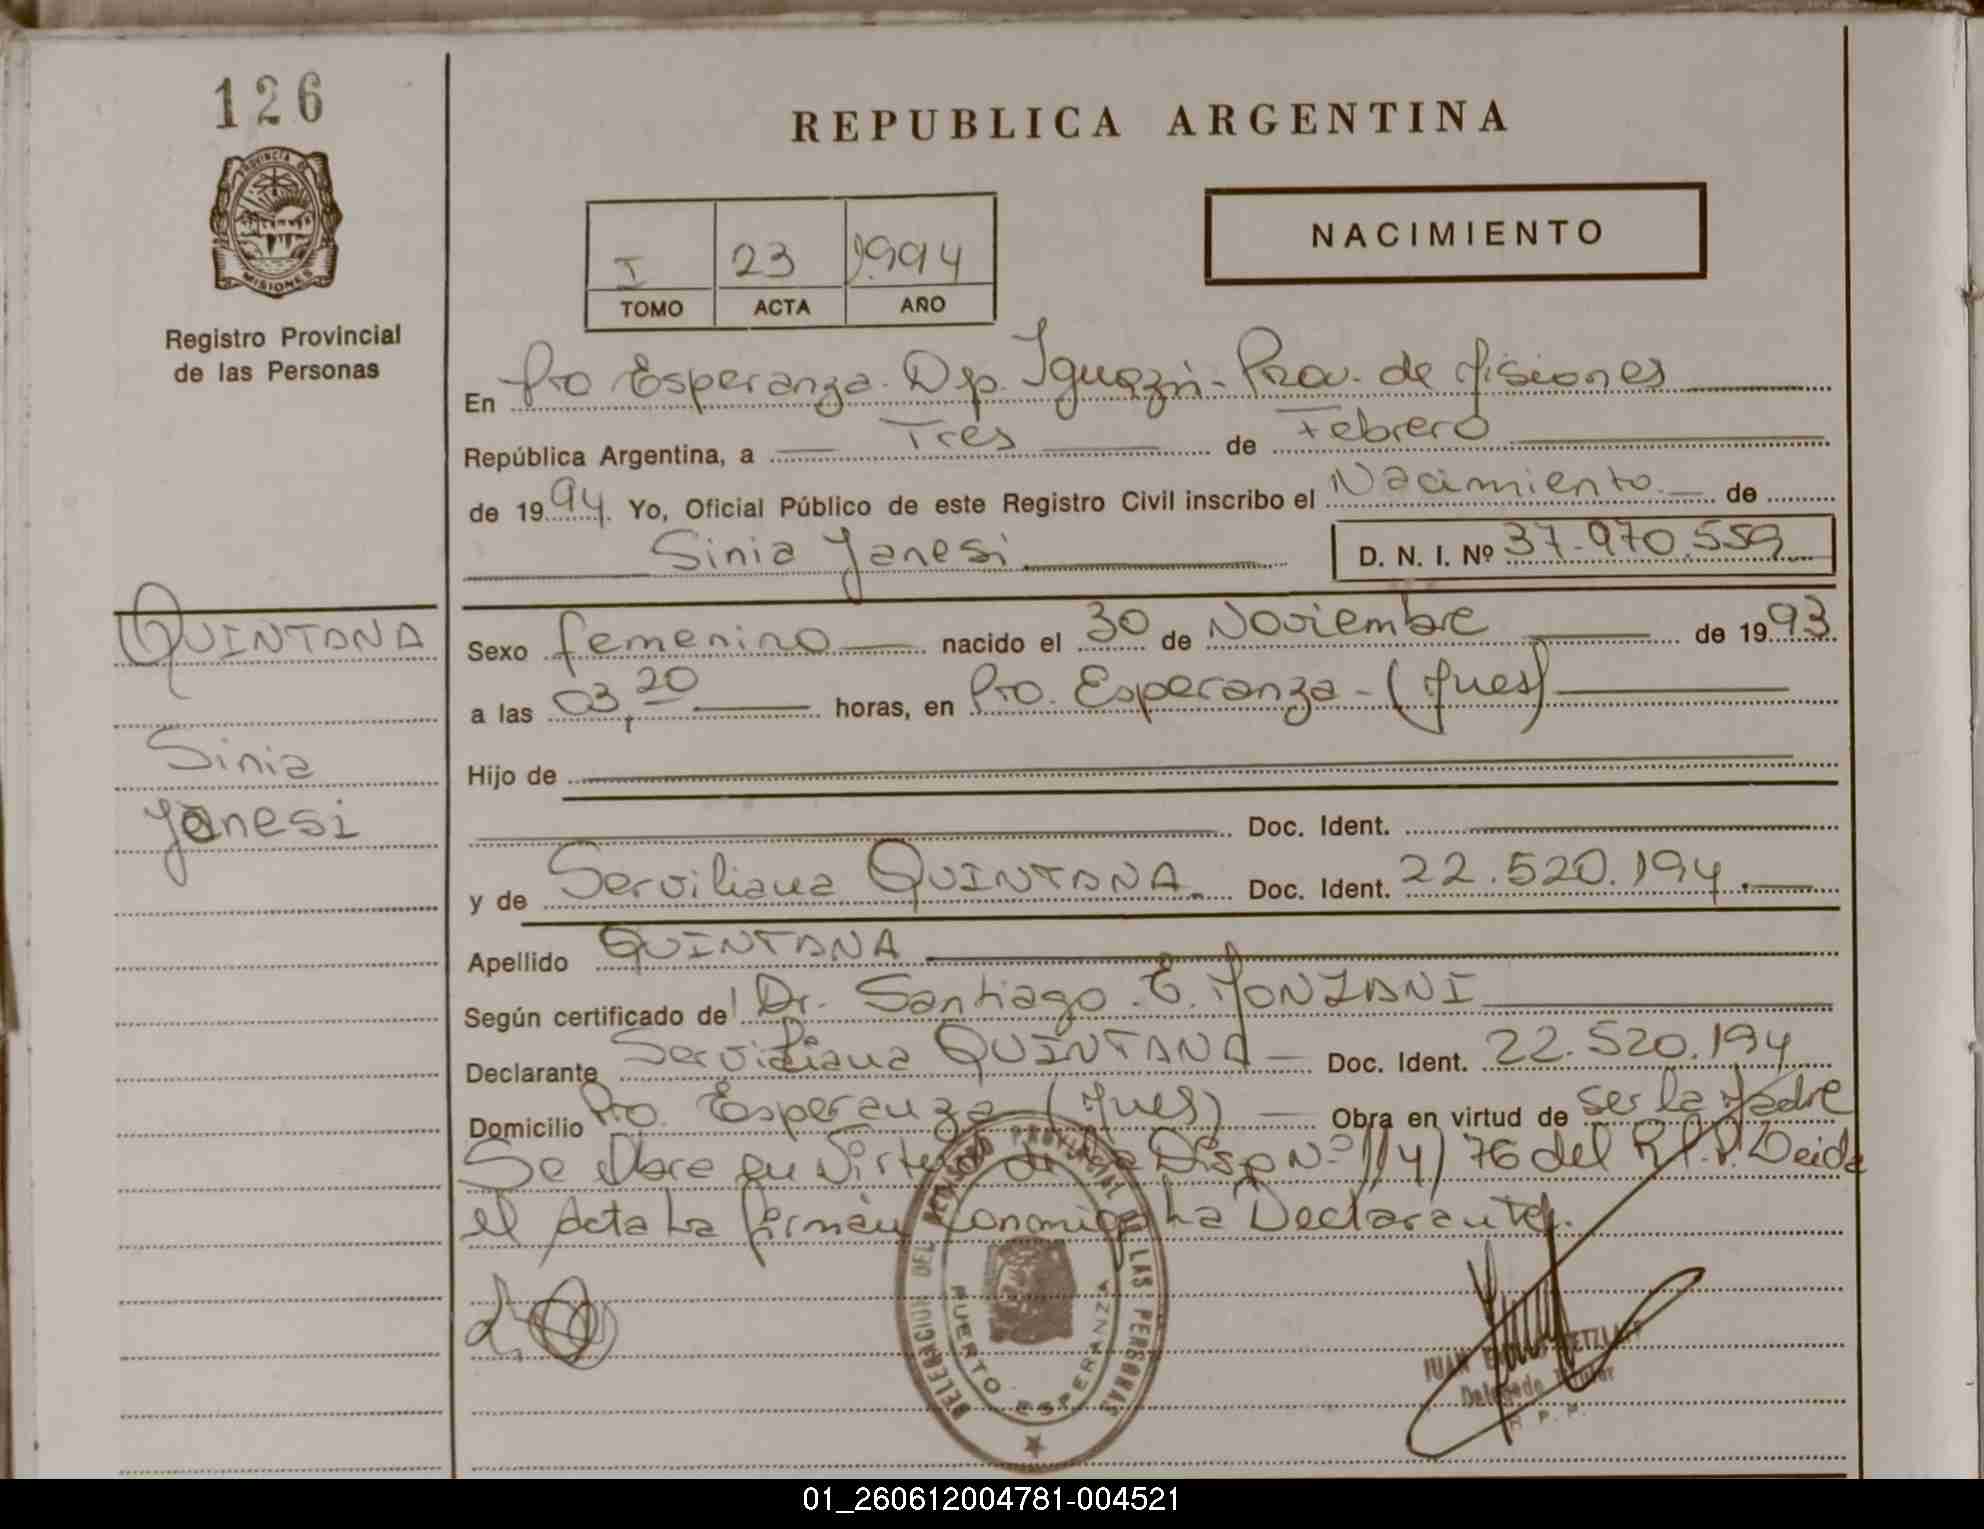 126
PROVINCIA DE
MISIONES
Registro Provincial
de las Personas
REPUBLICA ARGENTINA
NACIMIENTO
I 23 1994
TOMO ACTA AÑO
En Pto Esperanza. Dep. Iguazú - Prov. de Misiones
República Argentina, a Tres de Febrero
de 1994. Yo, Oficial Público de este Registro Civil inscribo el Nacimiento de
Sinia Yanesi D. N. I. Nº 37.970.559
QUINTANA
Sinia
Yanesi
Sexo femenino nacido el 30 de Noviembre de 1993
a las 03,20 horas, en Pto. Esperanza - (Mnes)
Hijo de
Doc. Ident.
y de Serviliana QUINTANA. Doc. Ident. 22.520.194.
Apellido QUINTANA
Según certificado de Dr. Santiago E. MONZANI
Declarante Serviliana QUINTANA Doc. Ident. 22.520.194
Domicilio Pto. Esperanza (Mnes) Obra en virtud de ser la Madre
Se Obra en Virtud de la Disp Nº 114/76 del R.P.P. Leida
el Acta La firman Conmigo La Declarante.
DELEGACION DEL REGISTRO PROVINCIAL DE LAS PERSONAS
PUERTO ESPERANZA
JUAN
Delegado Titular
R. P. P.
01_260612004781-004521